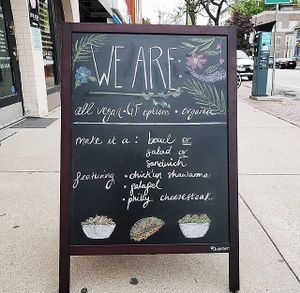 WE ARE:
all vegan • GF options • organic
make it a : bowl or
salad or
sandwich
featuring • chick'n shawarma
• falafel
• philly cheesesteak